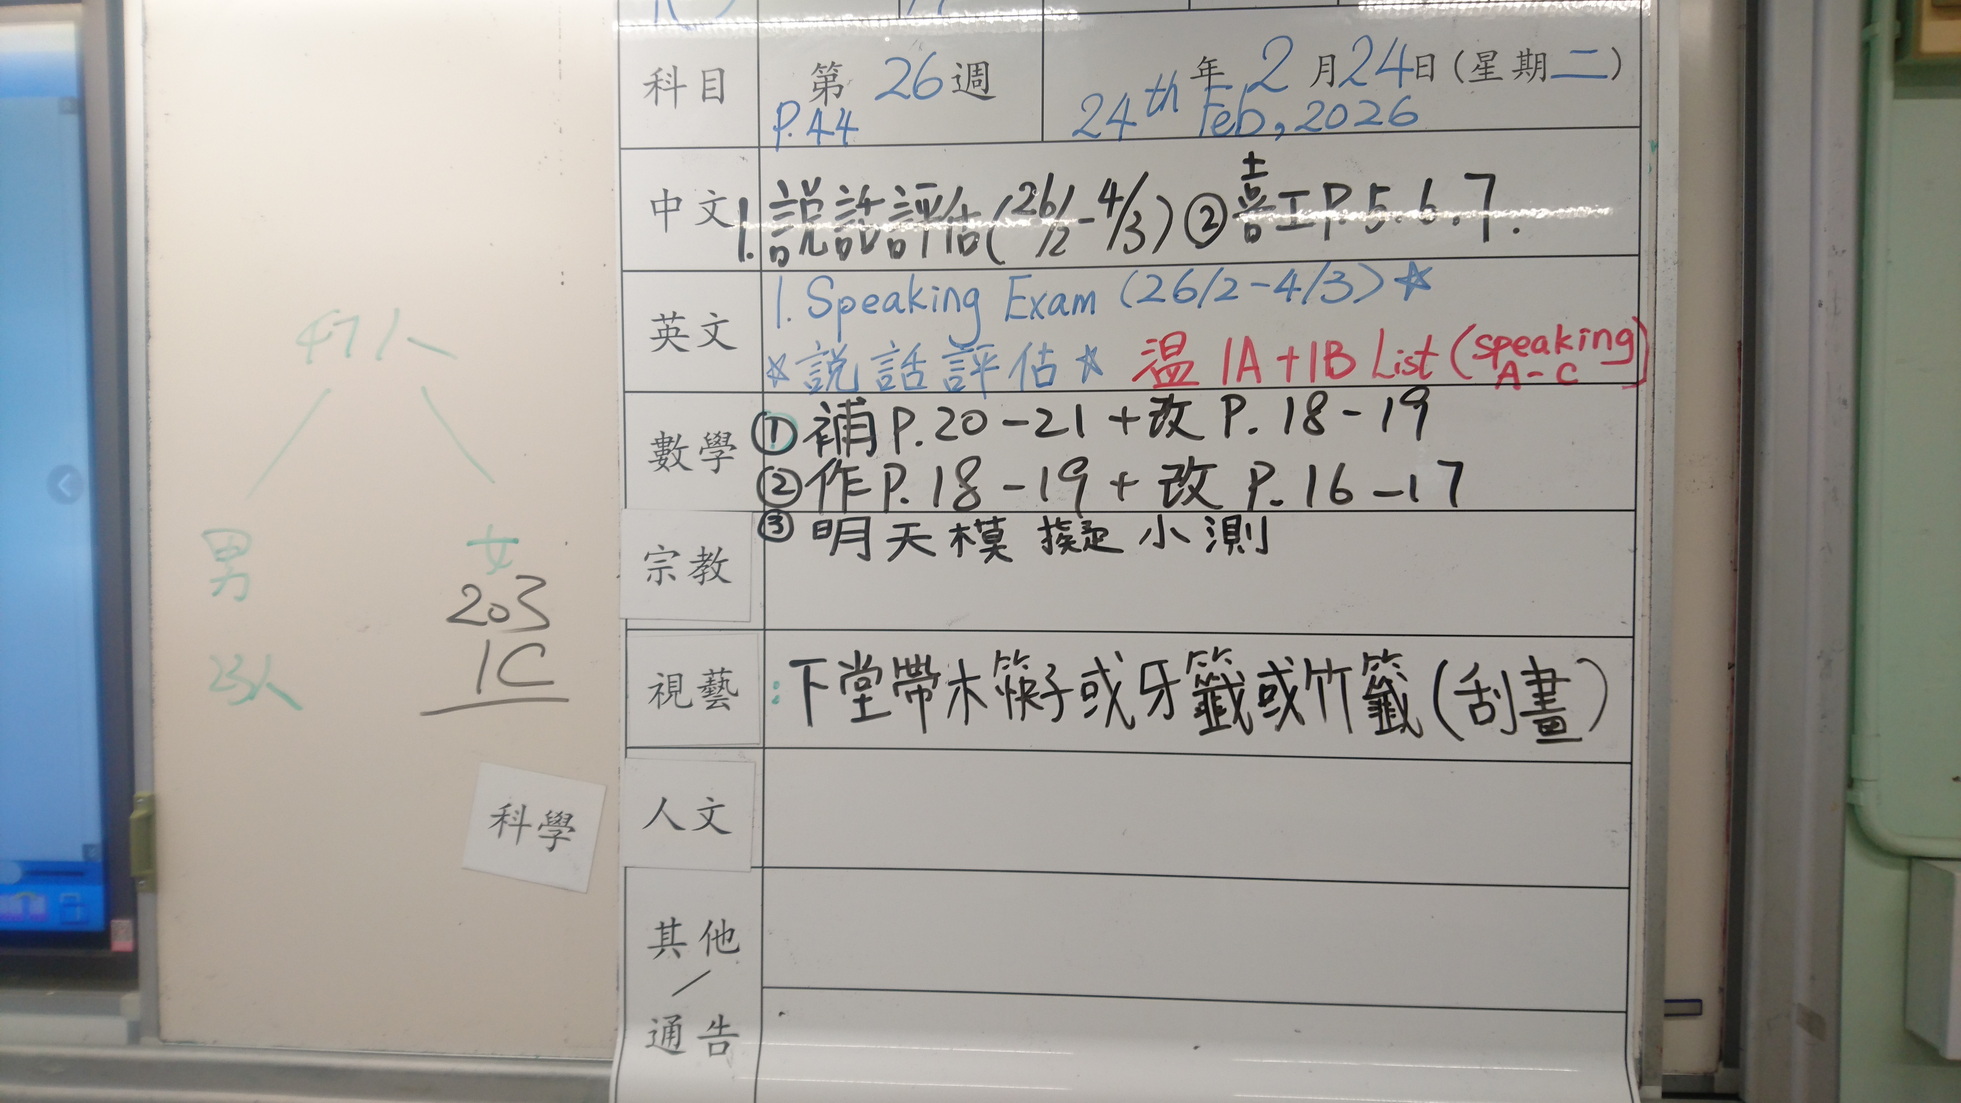 科目 第 26 週 年 2 月 24 日 (星期二)
P.44 24th Feb, 2026
中文 1. 説話評估(26/2-4/3) ② 喜工P.5.6.7.
英文 1. Speaking Exam (26/2-4/3) ☆
☆説話評估☆ 溫 1A+1B List (speaking A-C)
數學 ① 補 P.20-21 + 改 P.18-19
② 作 P.18-19 + 改 P.16-17
③ 明天模擬小測
宗教
視藝 :下堂帶木筷子或牙籤或竹籤(刮畫)
人文
其他
/
通告
47人
男 女
23人
203
1C
科學